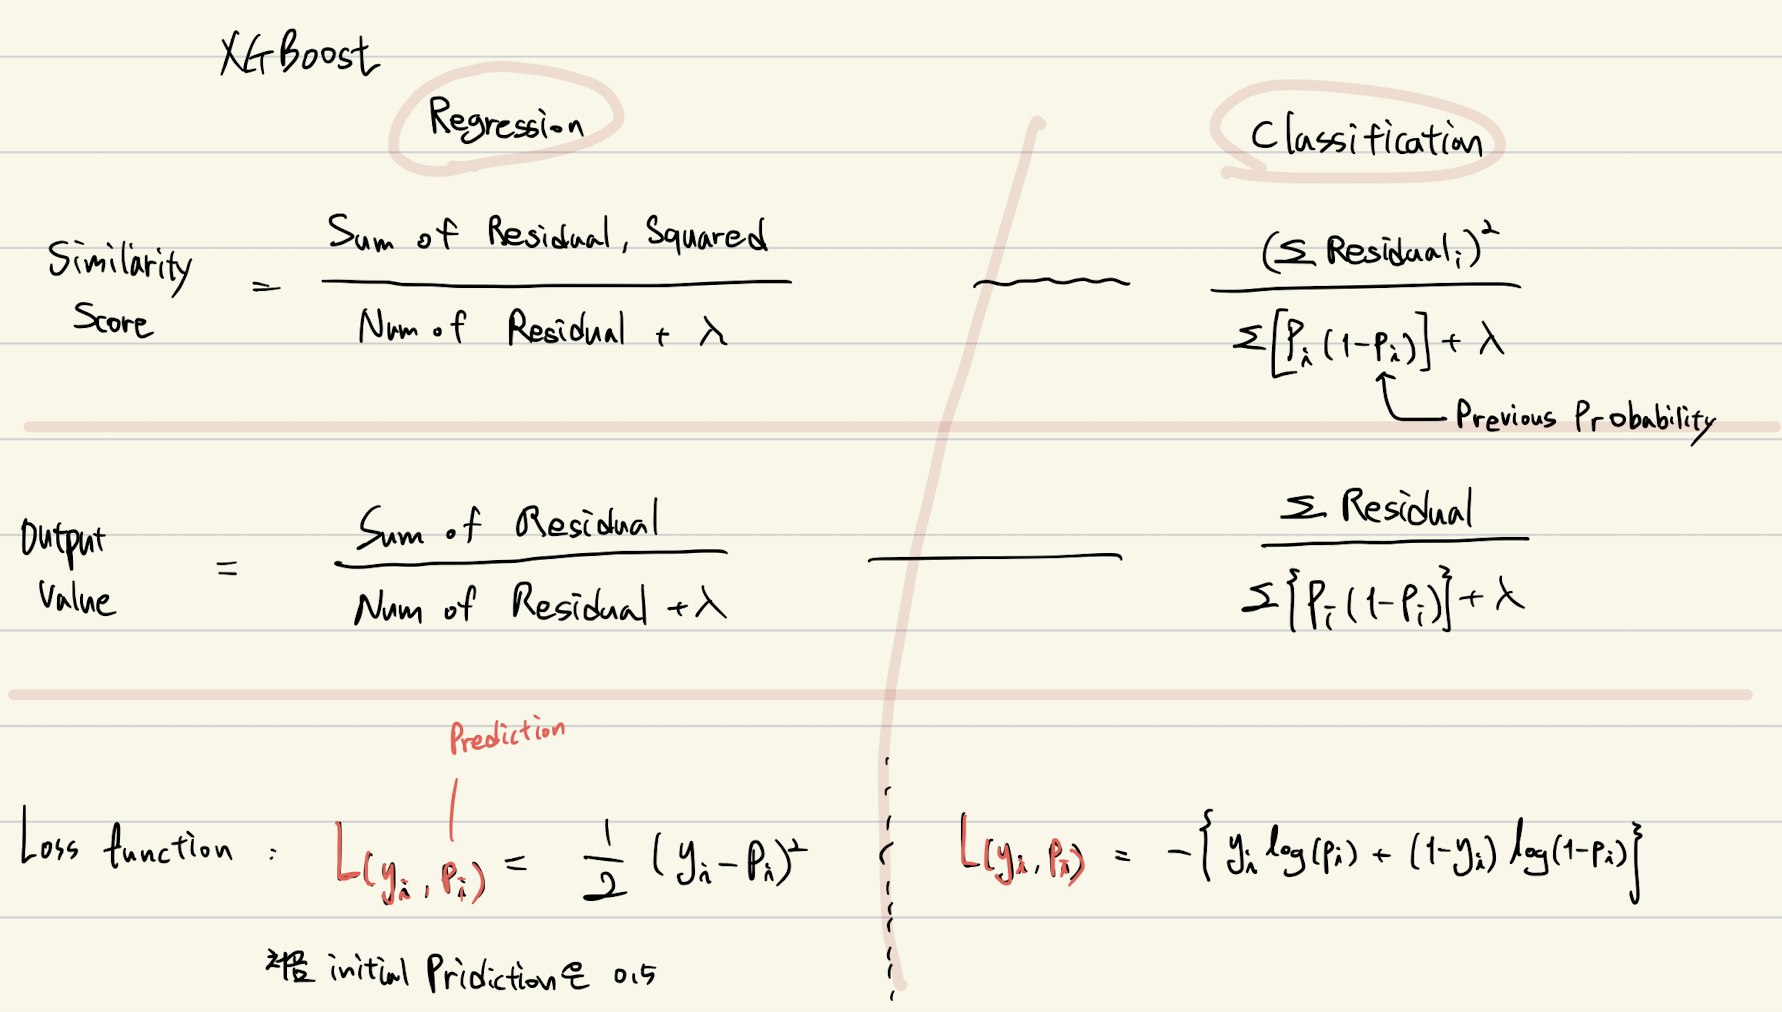 XGBoost
Regression
Classification
Similarity Score = Sum of Residual, Squared / Num of Residual + λ
(Σ Residual_i)² / Σ[P_i (1-P_i)] + λ
Previous Probability
Output Value = Sum of Residual / Num of Residual + λ
Σ Residual / Σ{P_i (1-P_i)} + λ
Prediction
Loss function : L(y_i, P_i) = 1/2 (y_i - P_i)²
L(y_i, P_i) = -{y_i log(P_i) + (1-y_i) log(1-P_i)}
initial Pridiction은 0.5